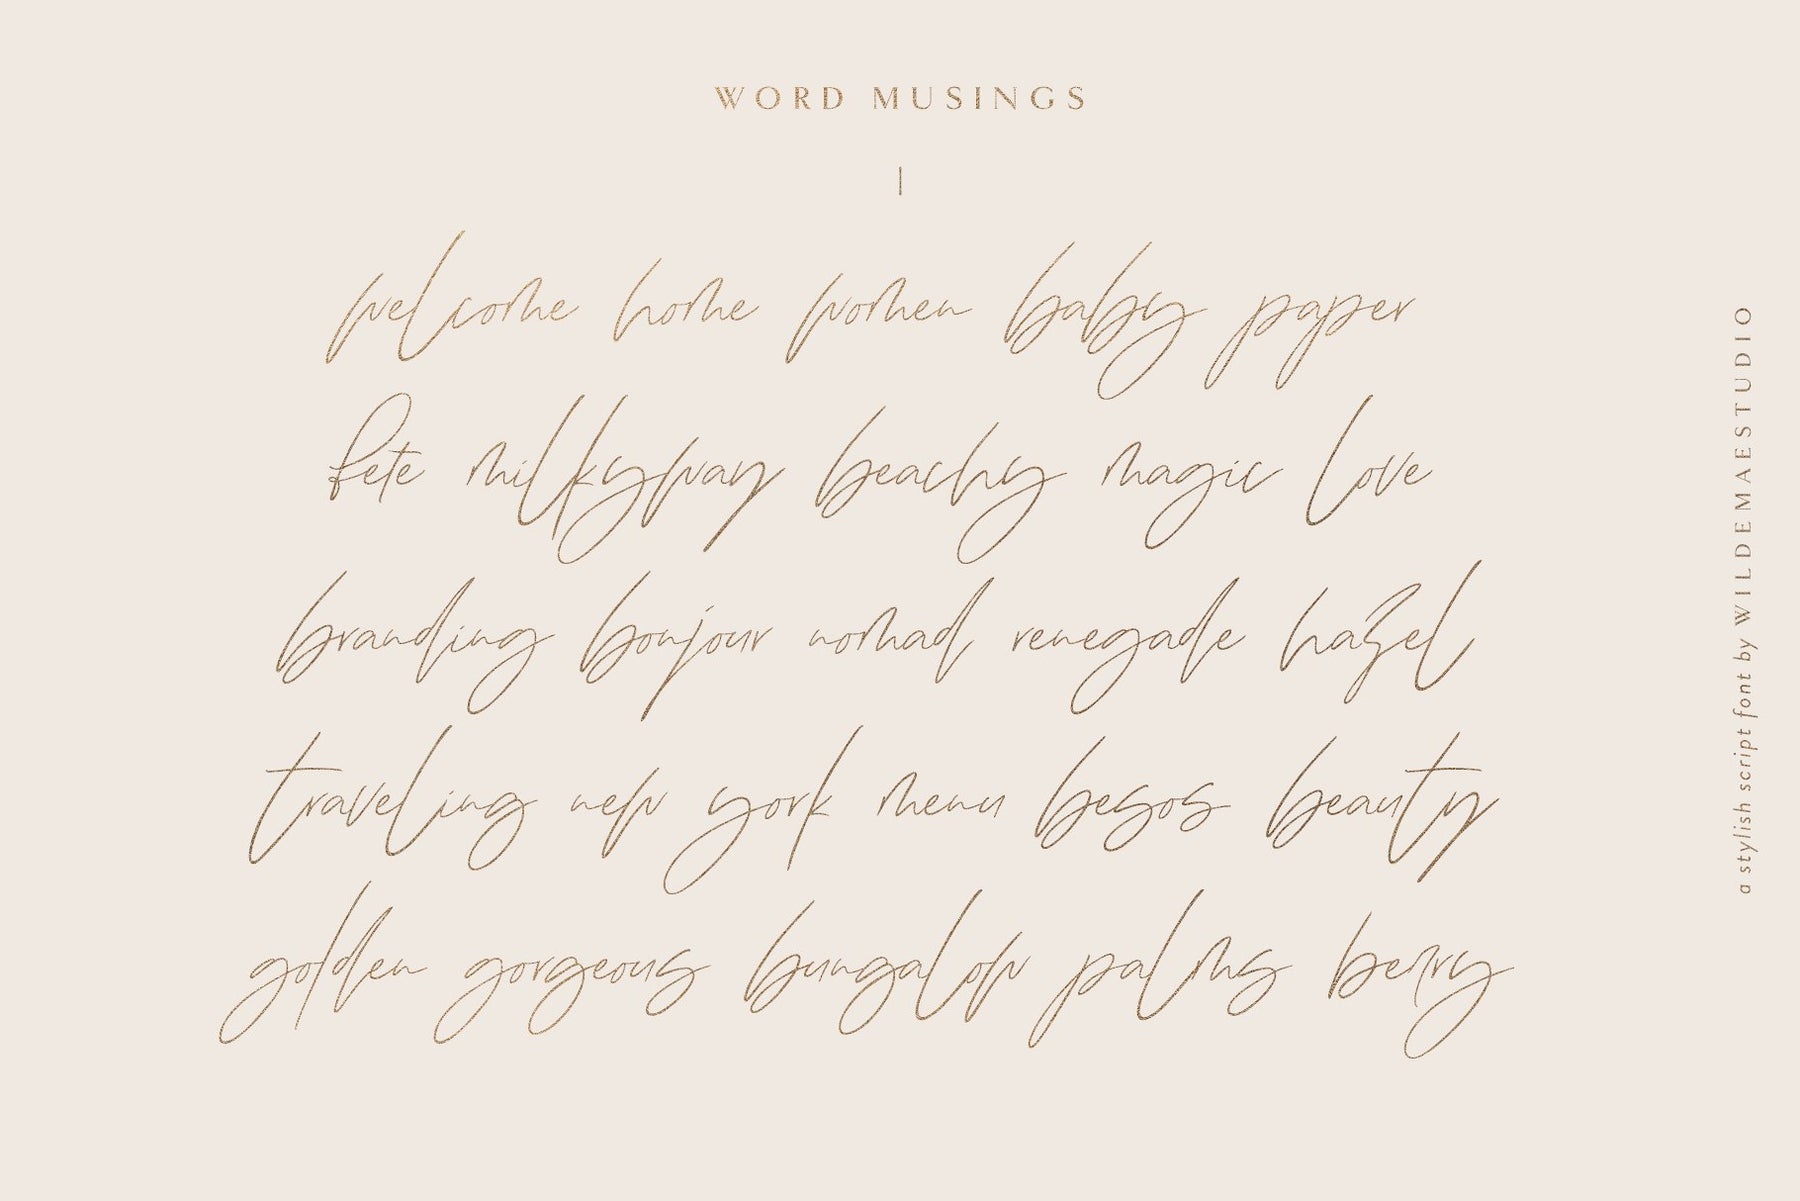 WORD MUSINGS
welcome home women baby paper
fete milkyway beachy magic love
branding bonjour nomad renegade hazel
traveling new york menu besos beauty
golden gorgeous bungalow palms berry
a stylish script font by WILDEMAESTUDIO